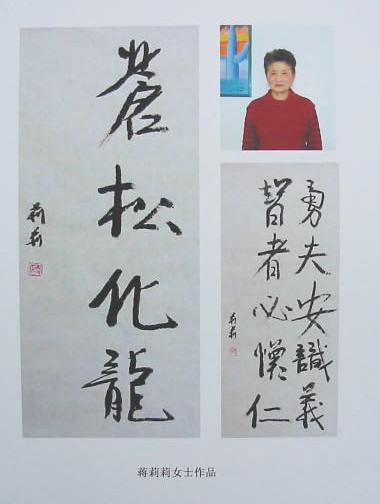 蒼松化龍
莉莉
勇夫安識義
智者必懷仁
莉莉
蒋莉莉女士作品